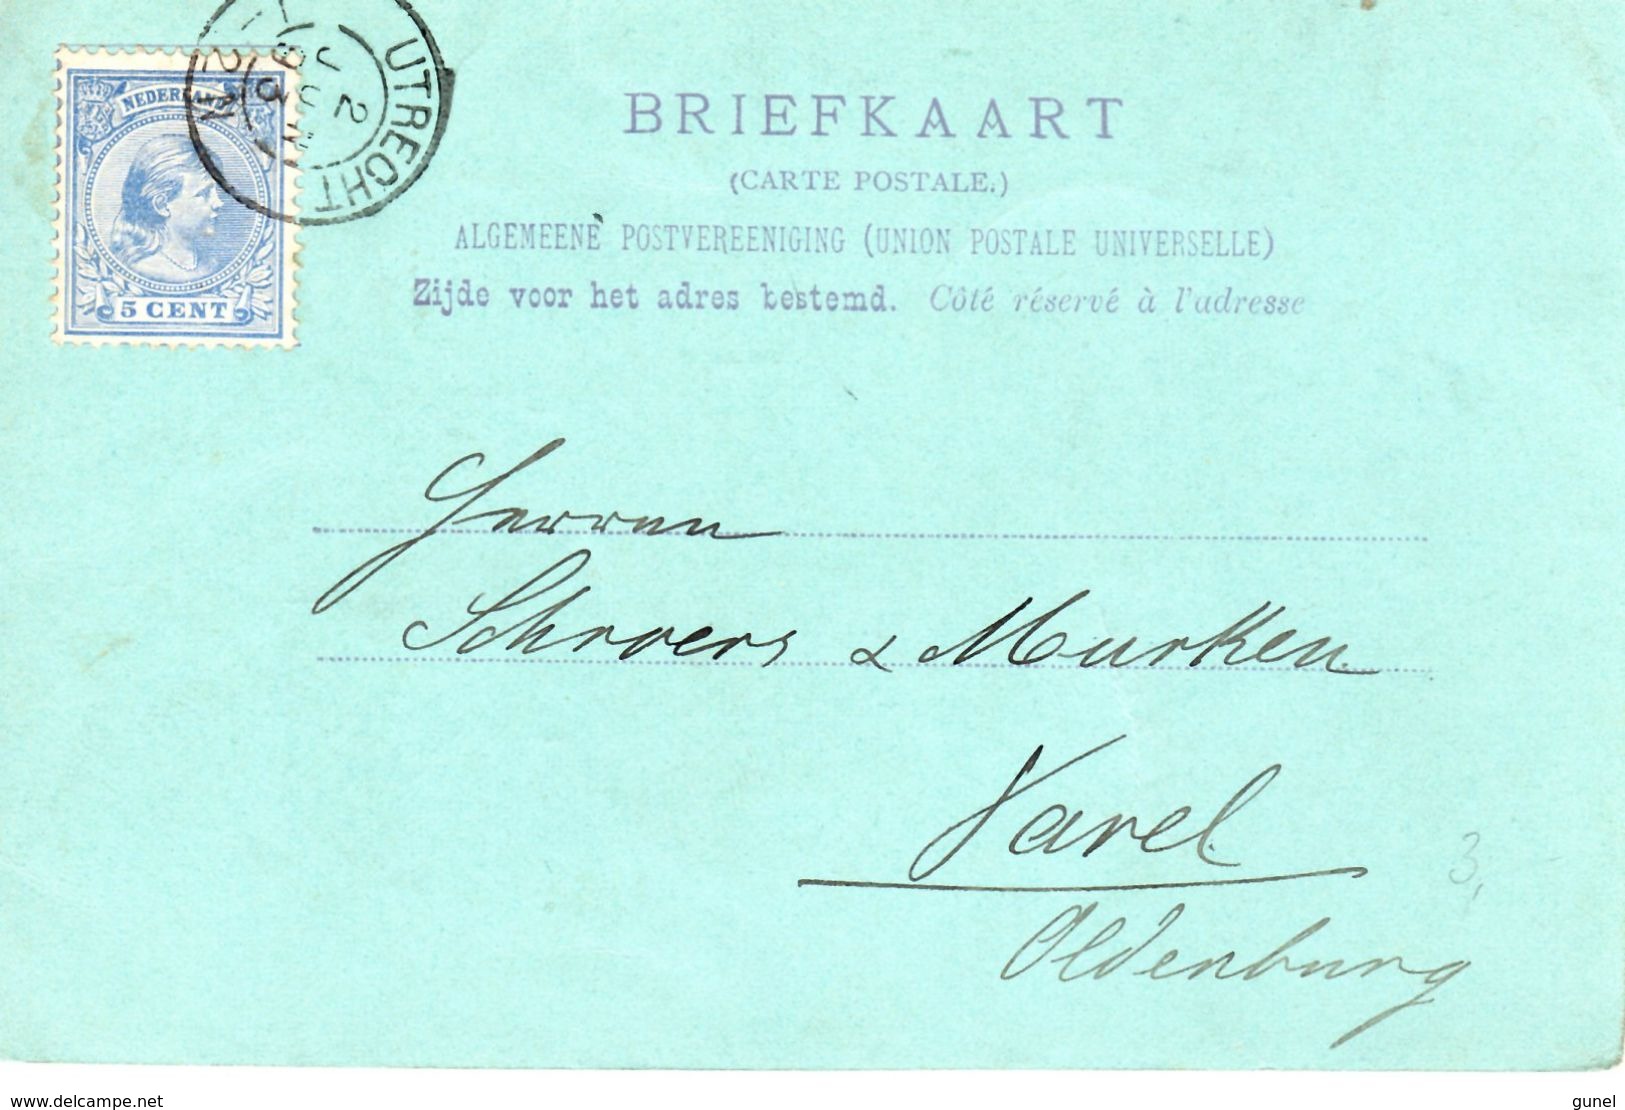 NEDERLAND
5 CENT
UTRECHT
2 JUN
93
BRIEFKAART
(CARTE POSTALE.)
ALGEMEENE POSTVEREENIGING (UNION POSTALE UNIVERSELLE)
Zijde voor het adres bestemd. Côté réservé à l'adresse
Herren
Schroers & Murken
Varel
Oldenburg
3,
www.delcampe.net
gunel